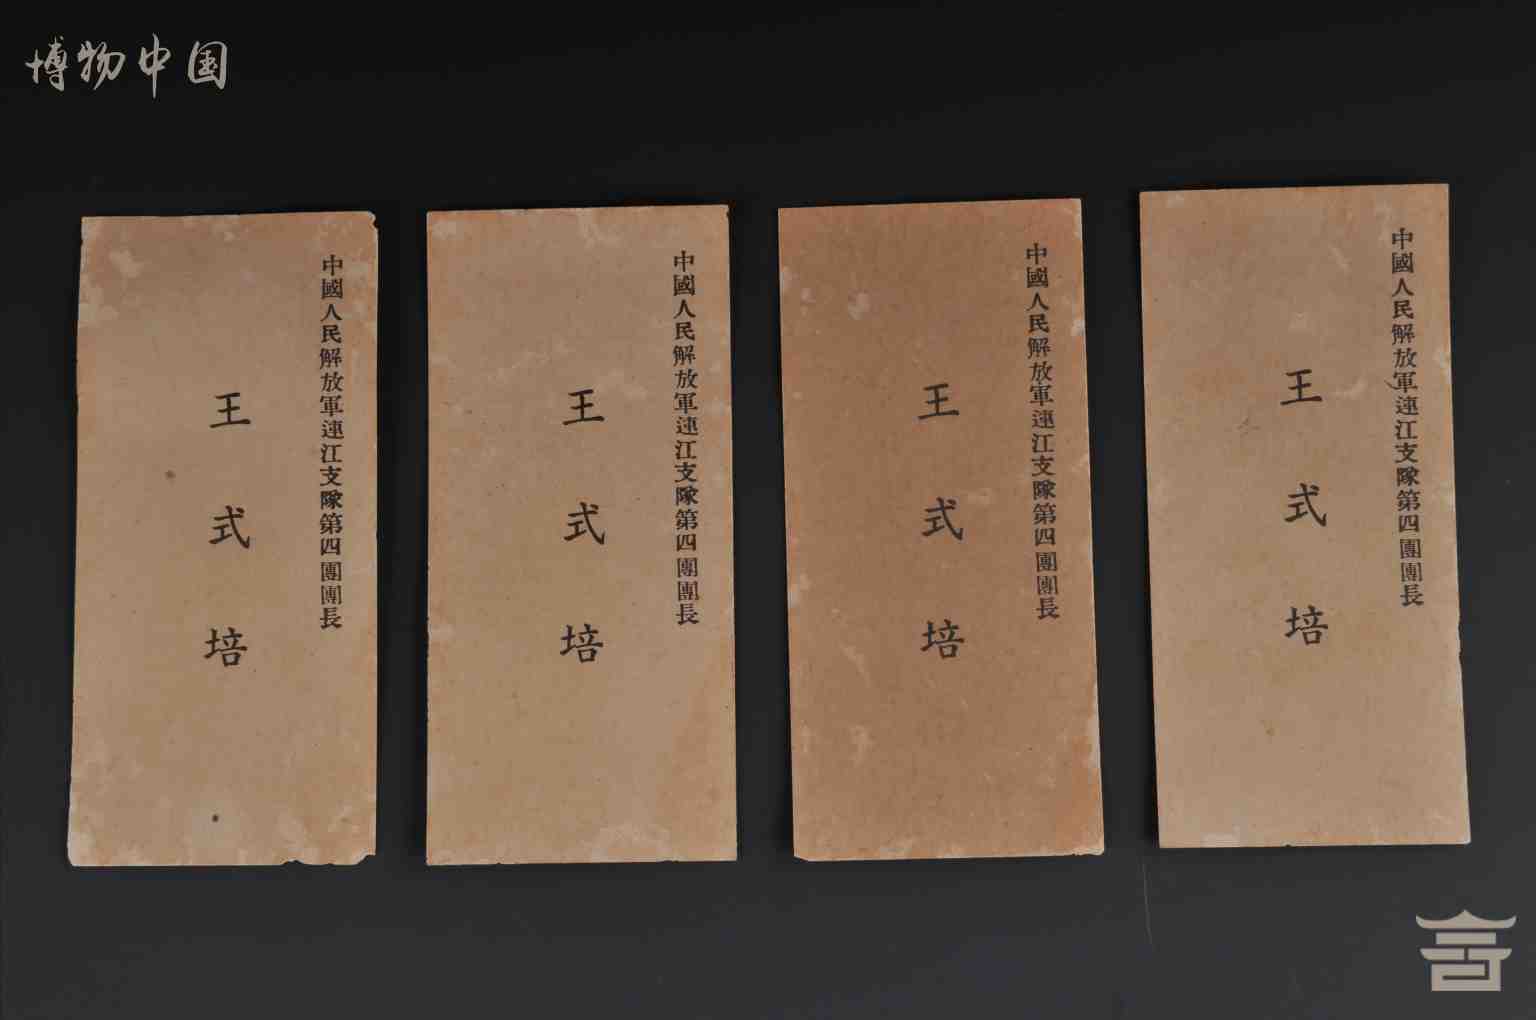 博物中国
中國人民解放軍連江支隊第四團團長
王式培
中國人民解放軍連江支隊第四團團長
王式培
中國人民解放軍連江支隊第四團團長
王式培
中國人民解放軍連江支隊第四團團長
王式培